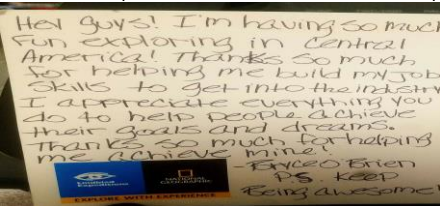 Hey guys! I'm having so much
fun exploring in Central
America! Thanks so much
for helping me build my job
skills to get into the industry
I appreciate everything you
do to help people achieve
their goals and dreams.
Thanks so much for helping
me achieve mine!
-Bryce O'Brien
P.S. Keep
Being awesome!
Lindblad
Expeditions
NATIONAL
GEOGRAPHIC
EXPLORE WITH EXPERIENCE